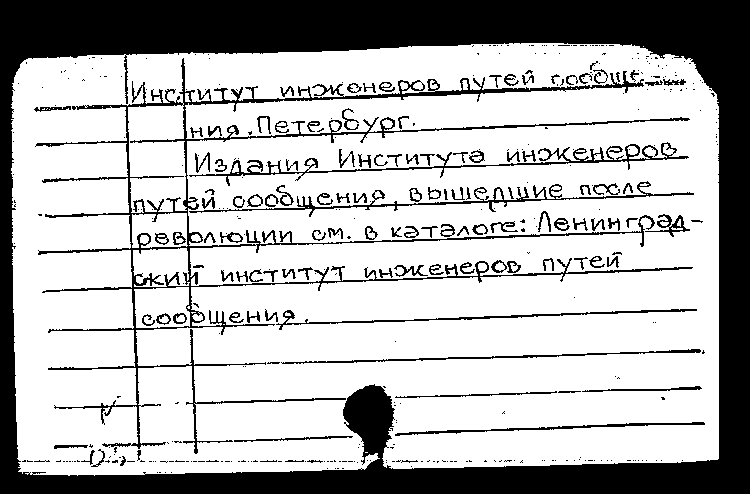 Институт инженеров путей сообще-
ния. Петербург.
Издания Института инженеров
путей сообщения, вышедшие после
революции см. в каталоге: Ленинград-
ский институт инженеров путей
сообщения.